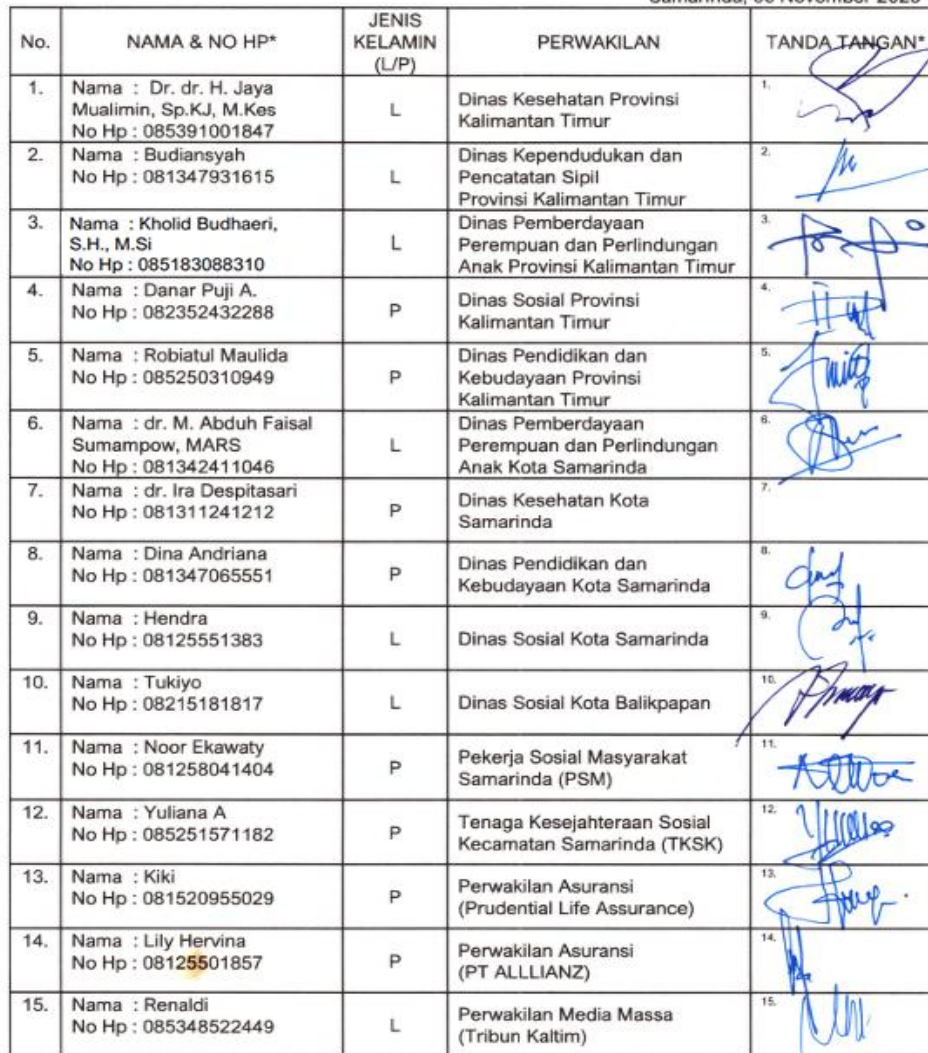 No.
NAMA & NO HP*
JENIS
KELAMIN
(L/P)
PERWAKILAN
TANDA TANGAN*
1.
Nama : Dr. dr. H. Jaya
Mualimin, Sp.KJ, M.Kes
No Hp : 085391001847
L
Dinas Kesehatan Provinsi
Kalimantan Timur
1.
2.
Nama : Budiansyah
No Hp : 081347931615
L
Dinas Kependudukan dan
Pencatatan Sipil
Provinsi Kalimantan Timur
2.
3.
Nama : Kholid Budhaeri,
S.H., M.Si
No Hp : 085183088310
L
Dinas Pemberdayaan
Perempuan dan Perlindungan
Anak Provinsi Kalimantan Timur
3.
4.
Nama : Danar Puji A.
No Hp : 082352432288
P
Dinas Sosial Provinsi
Kalimantan Timur
4.
5.
Nama : Robiatul Maulida
No Hp : 085250310949
P
Dinas Pendidikan dan
Kebudayaan Provinsi
Kalimantan Timur
5.
6.
Nama : dr. M. Abduh Faisal
Sumampow, MARS
No Hp : 081342411046
L
Dinas Pemberdayaan
Perempuan dan Perlindungan
Anak Kota Samarinda
6.
7.
Nama : dr. Ira Despitasari
No Hp : 081311241212
P
Dinas Kesehatan Kota
Samarinda
7.
8.
Nama : Dina Andriana
No Hp : 081347065551
P
Dinas Pendidikan dan
Kebudayaan Kota Samarinda
8.
9.
Nama : Hendra
No Hp : 08125551383
L
Dinas Sosial Kota Samarinda
9.
10.
Nama : Tukiyo
No Hp : 08215181817
L
Dinas Sosial Kota Balikpapan
10.
11.
Nama : Noor Ekawaty
No Hp : 081258041404
P
Pekerja Sosial Masyarakat
Samarinda (PSM)
11.
12.
Nama : Yuliana A
No Hp : 085251571182
P
Tenaga Kesejahteraan Sosial
Kecamatan Samarinda (TKSK)
12.
13.
Nama : Kiki
No Hp : 081520955029
P
Perwakilan Asuransi
(Prudential Life Assurance)
13.
14.
Nama : Lily Hervina
No Hp : 08125501857
P
Perwakilan Asuransi
(PT ALLLIANZ)
14.
15.
Nama : Renaldi
No Hp : 085348522449
L
Perwakilan Media Massa
(Tribun Kaltim)
15.